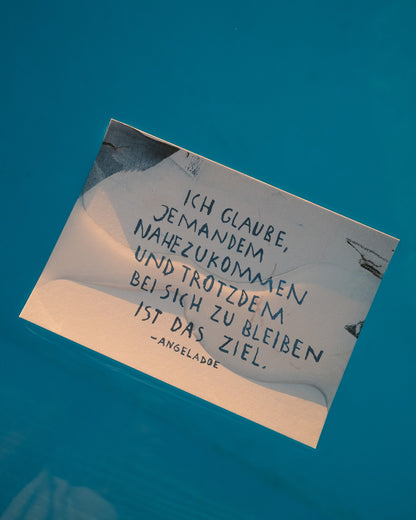 ICH GLAUBE,
JEMANDEM
NAHEZUKOMMEN
UND TROTZDEM
BEI SICH ZU BLEIBEN
IST DAS ZIEL.
-ANGELADOE